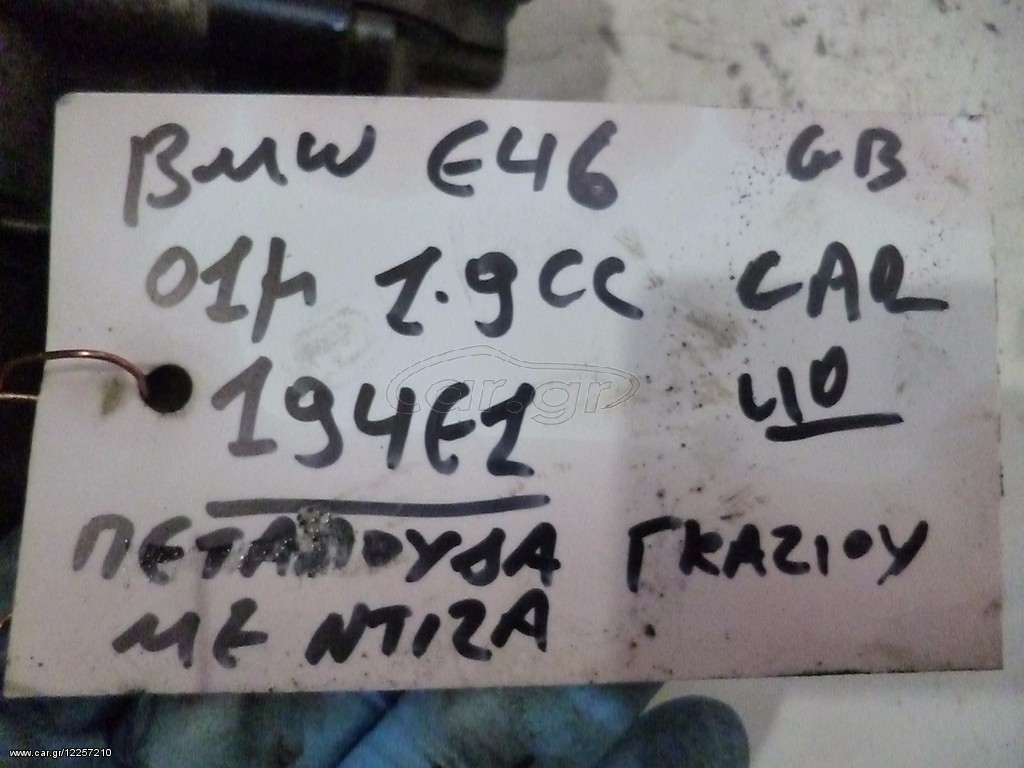 BMW E46 GB
01μ 1.9CC CAR
194E1 410
ΠΕΤΑΛΟΥΔΑ ΓΚΑΖΙΟΥ
ΜΕ ΝΤΙΖΑ
car.gr
www.car.gr/12257210